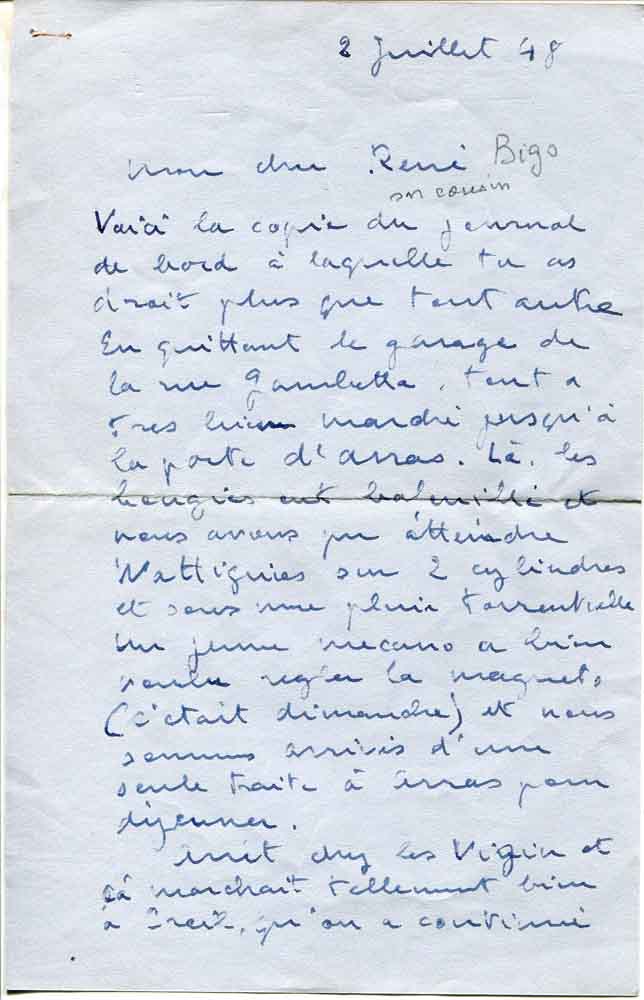 2 Juillet 48
Mon cher René Bigo
son cousin
Voici la copie du journal
de bord à laquelle tu as
droit plus que tout autre
En quittant le garage de
la rue Gambetta, tout a
très bien marché jusqu'à
la porte d'Arras. Là, les
bougies ont bafouillé et
nous avons pu atteindre
Wattignies sur 2 cylindres
et sous une pluie torrentielle
Un jeune mecano a bien
voulu regler la magneto
(c'était dimanche) et nous
sommes arrivés d'une
seule traite à Arras pour
déjeuner.
Arrêt chez les
et
çà marchait tellement bien
à Creil, qu'on a continué